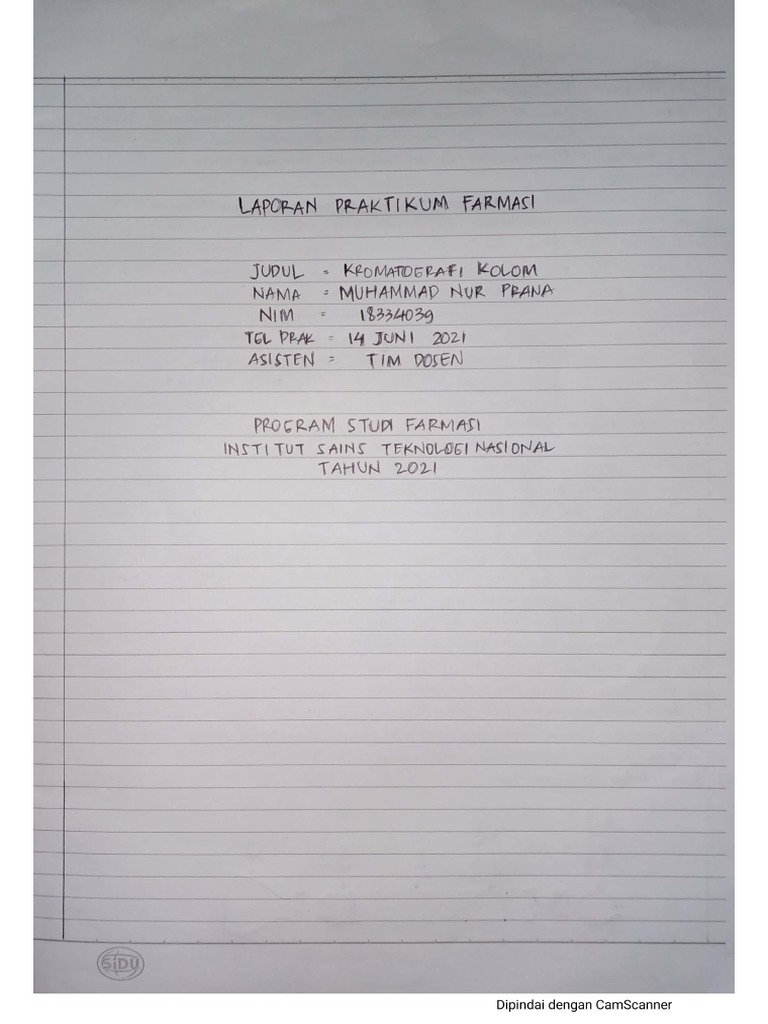 LAPORAN PRAKTIKUM FARMASI
JUDUL = KROMATOGRAFI KOLOM
NAMA = MUHAMMAD NUR PRANA
NIM = 18334039
TGL PRAK = 14 JUNI 2021
ASISTEN = TIM DOSEN
PROGRAM STUDI FARMASI
INSTITUT SAINS TEKNOLOGI NASIONAL
TAHUN 2021
SIDU
Dipindai dengan CamScanner